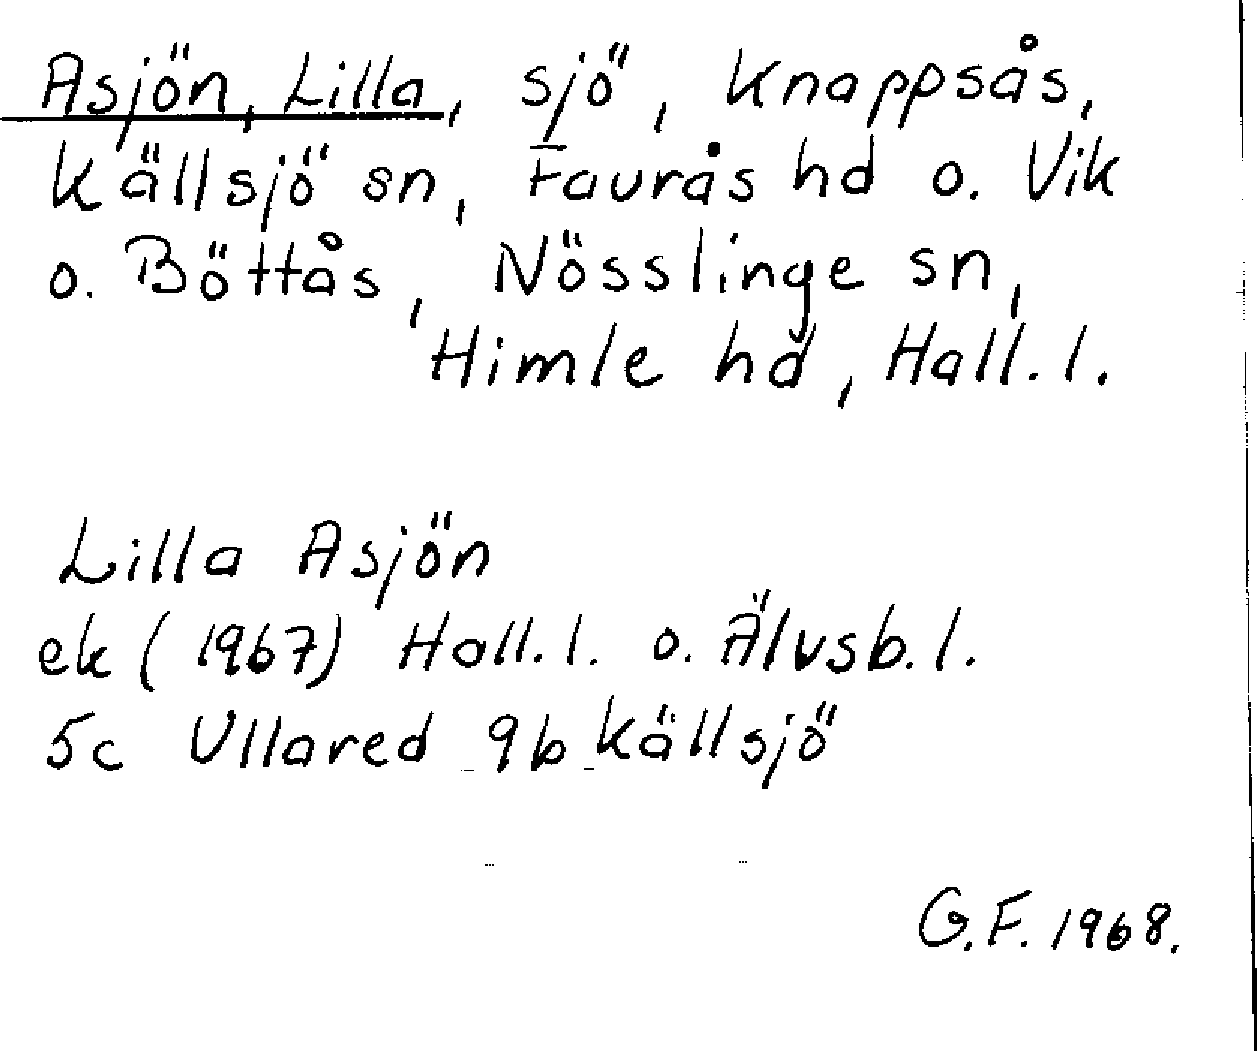 Asjön, Lilla, sjö, Knappsås,
Källsjö sn, Faurås hd o. Vik
o. Böttås, Nösslinge sn,
Himle hd, Hall. l.
Lilla Asjön
ek (1967) Hall. l. o. Älvsb. l.
5c Ullared 9b Källsjö
G. F. 1968.